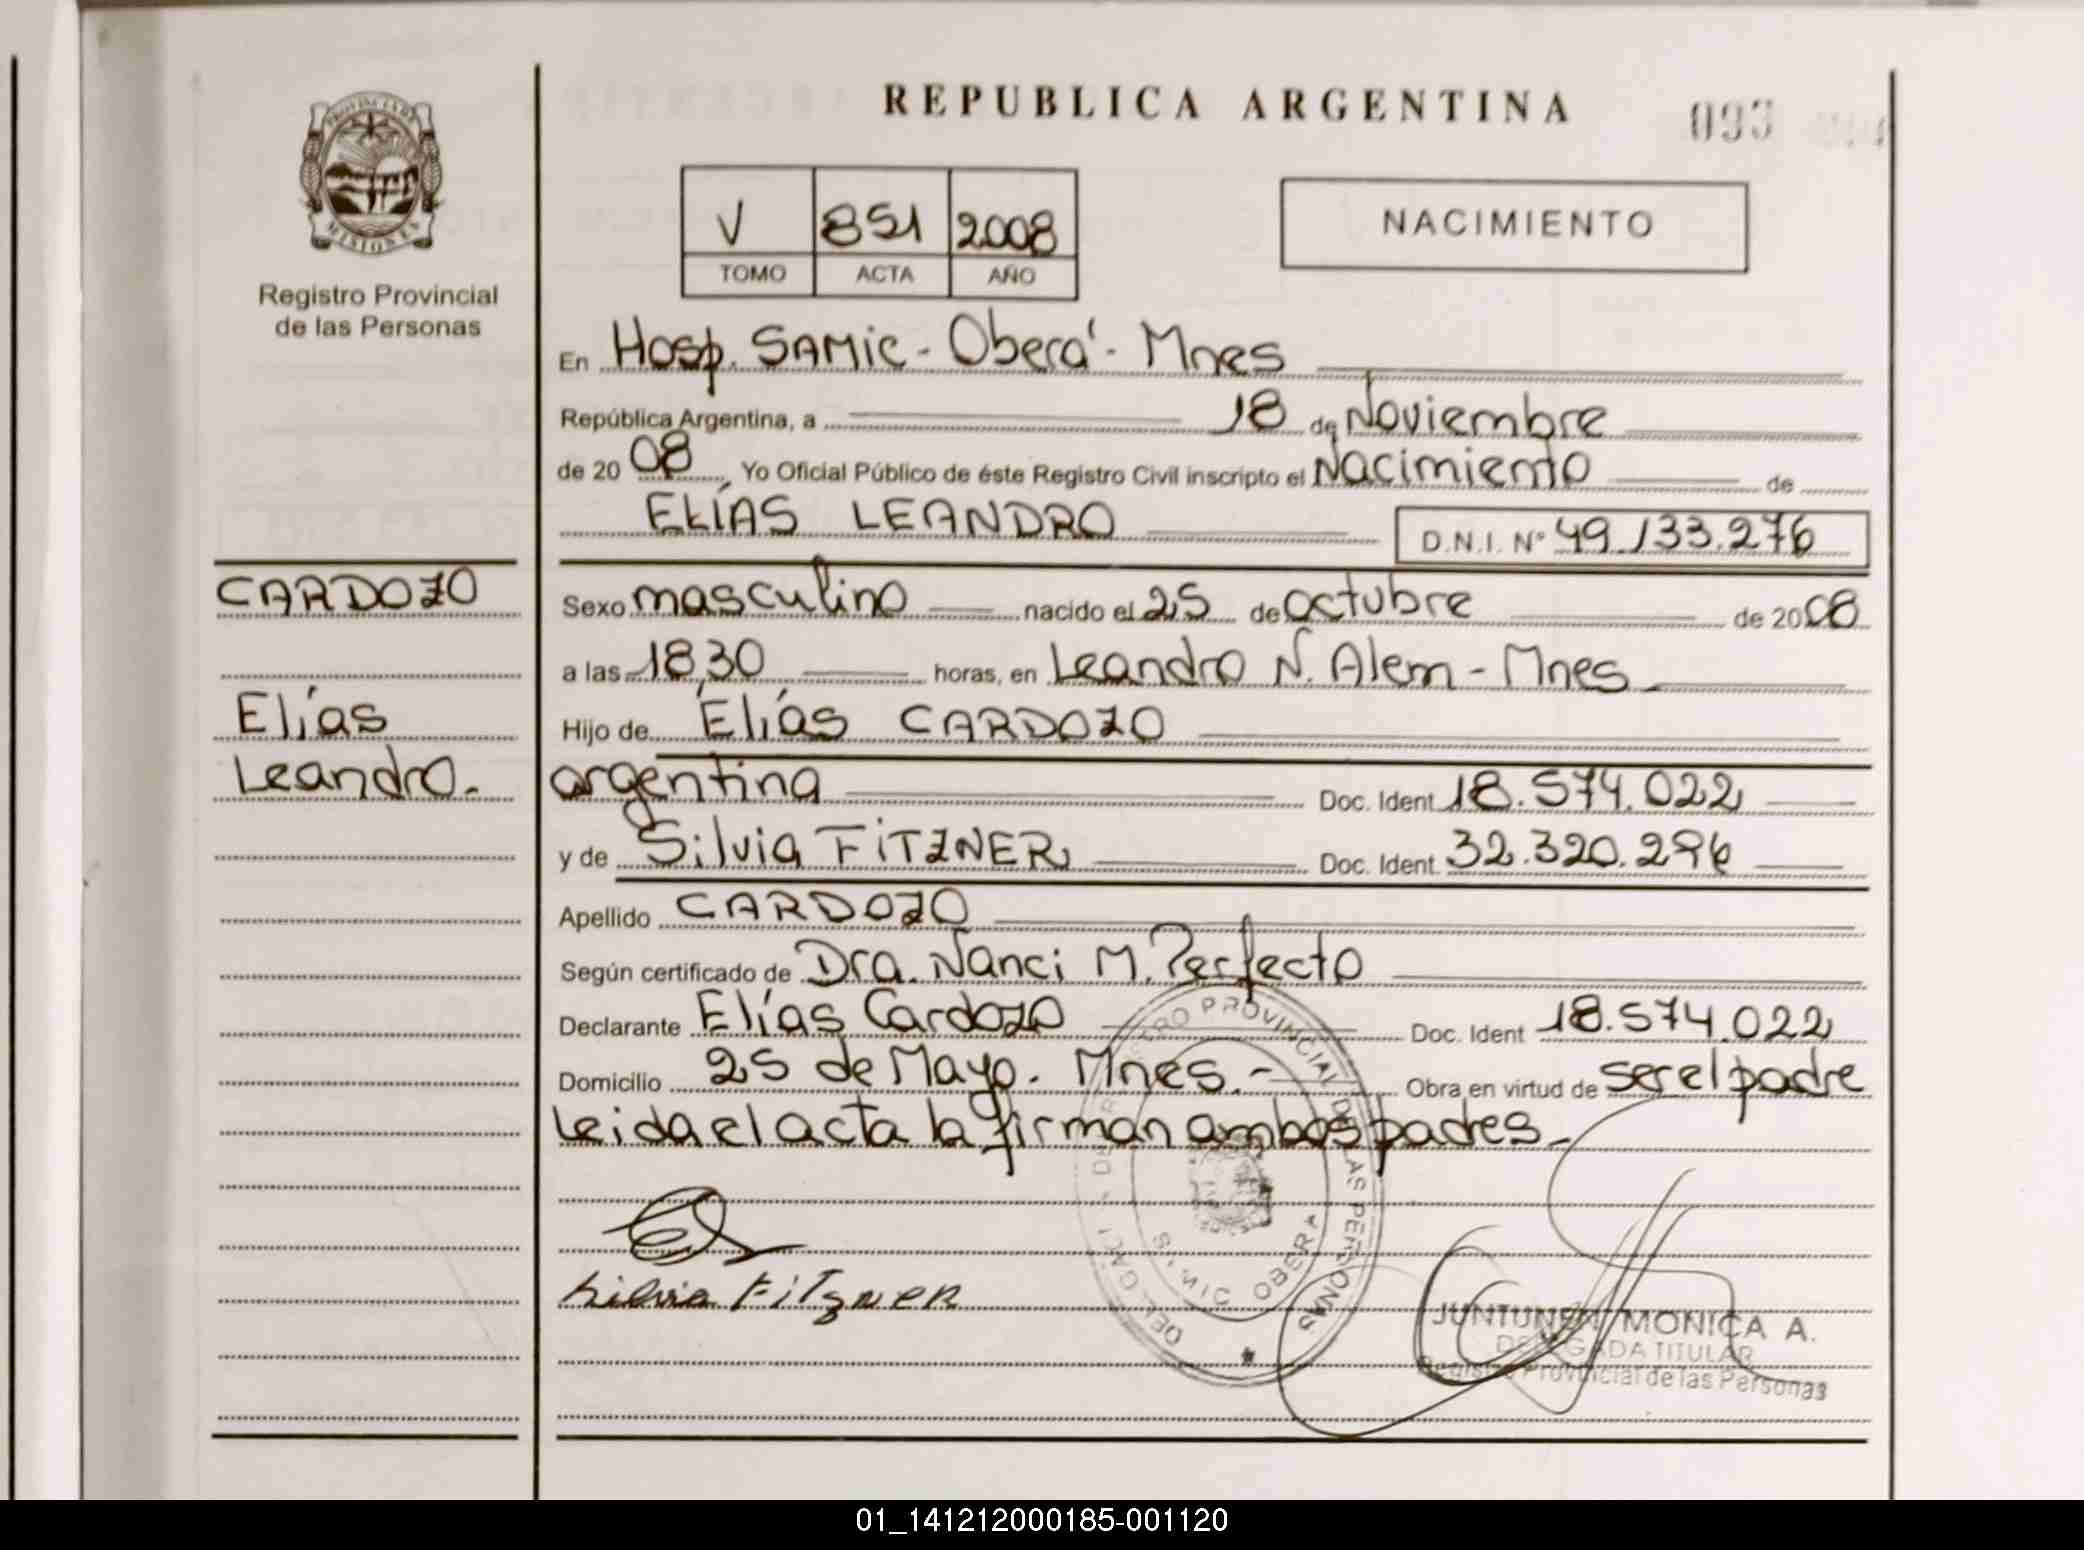 PROVINCIA DE
MISIONES
Registro Provincial
de las Personas
REPUBLICA ARGENTINA
093
V 851 2008
TOMO ACTA AÑO
NACIMIENTO
En Hosp. SAMIC - Oberá - Mnes
República Argentina, a 18 de Noviembre
de 20 08 Yo Oficial Público de éste Registro Civil inscripto el Nacimiento de
ELÍAS LEANDRO D.N.I. N° 49.133.276
CARDOZO
Elías
Leandro.
Sexo masculino nacido el 25 de octubre de 2008
a las 18,30 horas, en Leandro N. Alem - Mnes
Hijo de Elías CARDOZO
argentina Doc. Ident 18.574.022
y de Silvia FITZNER Doc. Ident. 32.320.296
Apellido CARDOZO
Según certificado de Dra. Nanci M. Perfecto
Declarante Elías Cardozo Doc. Ident 18.574.022
Domicilio 25 de Mayo. Mnes.- Obra en virtud de ser el padre
Leida el acta la firman ambos padres.-
Silvia Fitzner
REGISTRO PROVINCIAL DE LAS PERSONAS
OBERA
JUNTUNEN MONICA A.
DELEGADA TITULAR
Registro Provincial de las Personas
01_141212000185-001120